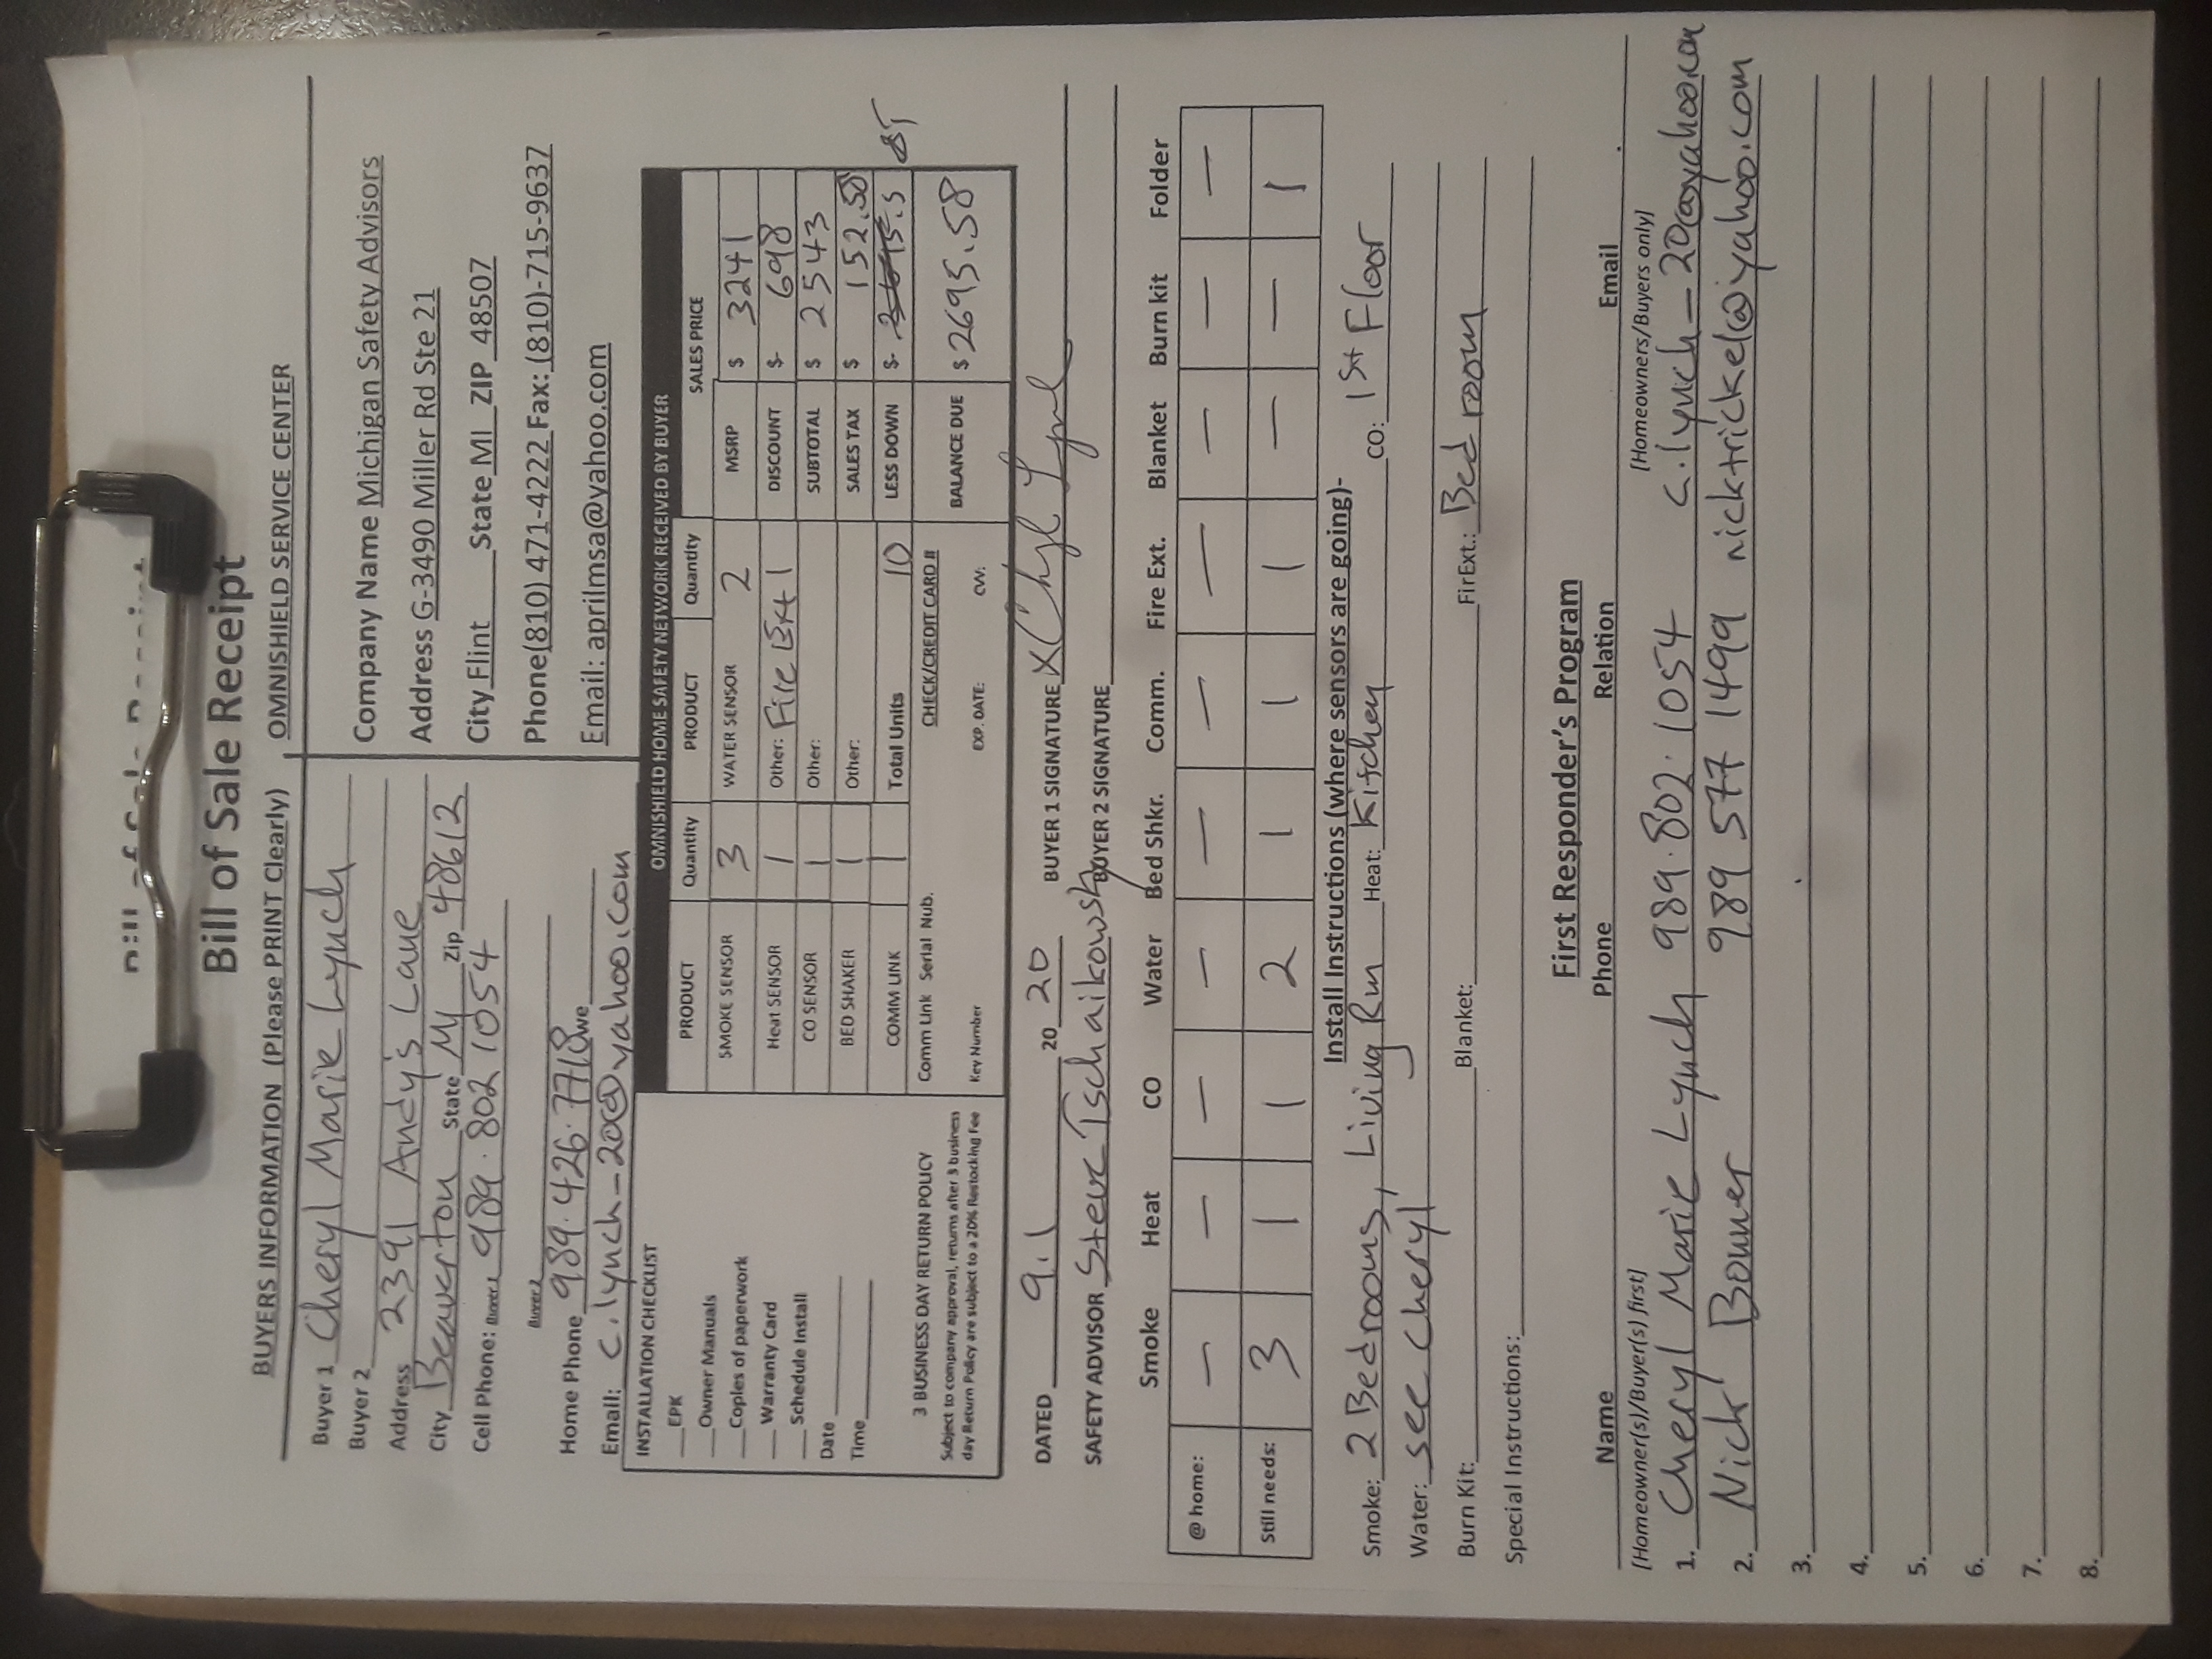 Bill of Sale Receipt
BUYERS INFORMATION (Please PRINT Clearly)
Buyer 1 Cheryl Marie Lynch
Buyer 2
Address 2391 Andy's Lane
City Beaverton State MI Zip 48612
Cell Phone: Buyer 1 989.802 1054
Buyer 2
Home Phone 989.426.7718 we
Email: c.lynch-20@yahoo.com
OMNISHIELD SERVICE CENTER
Company Name Michigan Safety Advisors
Address G-3490 Miller Rd Ste 21
City Flint State MI ZIP 48507
Phone(810) 471-4222 Fax: (810)-715-9637
Email: aprilmsa@yahoo.com
INSTALLATION CHECKLIST
EPK
Owner Manuals
Copies of paperwork
Warranty Card
Schedule Install
Date
Time
3 BUSINESS DAY RETURN POLICY
Subject to company approval, returns after 3 business
day Return Policy are subject to a 20% Restocking Fee
OMNISHIELD HOME SAFETY NETWORK RECEIVED BY BUYER
PRODUCT Quantity PRODUCT Quantity SALES PRICE
SMOKE SENSOR 3 WATER SENSOR 2 MSRP $ 3241
Heat SENSOR 1 Other: Fire Ext 1 DISCOUNT $- 698
CO SENSOR 1 Other: SUBTOTAL $ 2543
BED SHAKER 1 Other: SALES TAX $ 152.58
COMM LINK 1 Total Units 10 LESS DOWN $-
Comm Link Serial Nub. CHECK/CREDIT CARD # BALANCE DUE $ 2695.58
Key Number EXP. DATE: CVV:
DATED 9.1 20 20 BUYER 1 SIGNATURE X Chyl Lynch
SAFETY ADVISOR Steve Tschaikowsky BUYER 2 SIGNATURE
Smoke Heat CO Water Bed Shkr. Comm. Fire Ext. Blanket Burn kit Folder
@ home: — — — — — — — — — —
Still needs: 3 1 1 2 1 1 1 — — 1
Install Instructions (where sensors are going)-
Smoke: 2 Bedrooms, Living Rm Heat: Kitchen CO: 1st Floor
Water: see Cheryl
Burn Kit: Blanket: FirExt.: Bed room
Special Instructions:
First Responder's Program
Name Phone Relation Email
[Homeowner(s)/Buyer(s) first] [Homeowners/Buyers only]
1. Cheryl Marie Lynch 989.802.1054 c.lynch-20@yahoo.com
2. Nick Bonner 989 577 1499 nicktrickel@yahoo.com
3.
4.
5.
6.
7.
8.